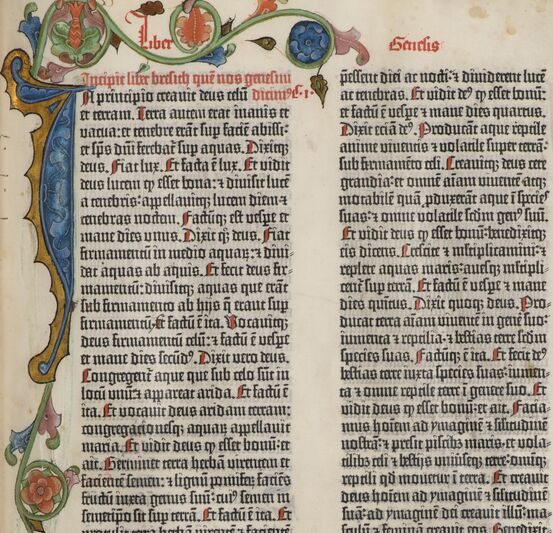 Liber
Genesis
Incipit liber bresich quē nos genesim
dicim⁹ c̄ 1
In principio creavit deus celū
et terram. Terra autem erat inanis et
vacua: et tenebre erāt sup faciē abissi:
et sp̄s dn̄i ferebat̄ sup aquas. Dixitqꝫ
deus. Fiat lux. Et facta ē lux. Et vidit
deus lucem qꝙ esset bona: et divisit lucē
a tenebris: appellavitqꝫ lucem diem et
tenebras noctem. Factūqꝫ est vespe et
mane dies unus. Dixit qꝫ deus. Fiat
firmamentū in medio aquaꝝ: et divi-
dat aquas ab aquis. Et fecit deus fir-
mamentū: divisitqꝫ aquas que erāt
sub firmamento ab hijs q̄ erant sup
firmamentū: et factū ē ita. Vocavitqꝫ
deus firmamentū celū: et factū ē vespe
et mane dies secūd⁹. Dixit vero deus.
Congregent̄ aque que sub celo sūt in
locū unū et appareat arida. Et factū ē
ita. Et vocavit deus aridam terram:
congregacionesqꝫ aquaꝝ appellavit
maria. Et vidit deus ꝙ esset bonū: et
ait. Germinet terra herbā virentem et
facientē semen: et lignū pomifeꝝ faciēs
fructū iuxta genus suū: cui⁹ semen in
semetipso sit sup terrā. Et factū ē ita. Et
protulit terra herbā virentē et facientē
pr̄essent diei ac nocti: et dividerent lucē
ac tenebras. Et vidit de⁹ ꝙ esset bonū:
et factū ē vespe et mane dies quartus.
Dixit eciā de⁹. Producant aque reptile
anime viventis et volatile super terrā:
sub firmamēto celi. Creavitqꝫ deus cete
grandia: et omnē aīam viventē atqꝫ
motabilē quā pduxerāt aque ī species
suas: et omne volatile scd̄m gen⁹ suū.
Et vidit deus ꝙ esset bonū: benedixitqꝫ
eis dicens. Crescite et mltiplicamini: et
replete aquas maris: avesqꝫ mltipli-
cent̄ sup terrā. Et factū ē vespe et mane
dies quīntus. Dixit quoqꝫ deus. Pro-
ducat terra aīam viventē in gene suo:
iumenta et reptilia: et bestias terre scd̄m
species suas. Factūqꝫ ē ita. Et fecit de⁹
bestias terre iuxta species suas: iumen-
ta et omne reptile terre ī genere suo. Et
vidit deus ꝙ esset bonū: et ait. Facia-
mus hoīem ad ymaginē et silitudinē
nostrā: et presit piscibꝫ maris: et vola-
tilibꝫ celi et bestijs universeqꝫ terre: omīqꝫ
reptili qd̄ movetur ī terra. Et creavit
deus hoīem ad ymaginē et silitudinē
suā: ad ymaginē dei creavit illū: ma-
sculū et feminā creavit eos. Benedixit-